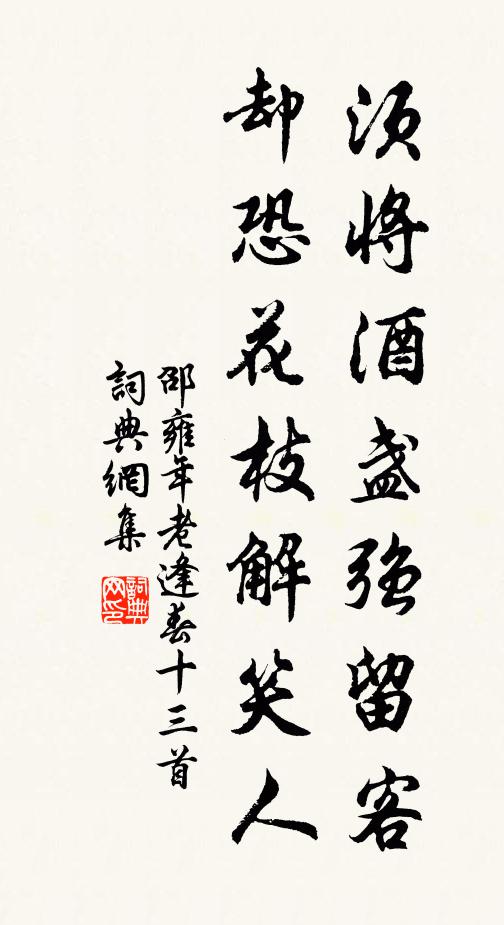 須將酒盞強留客
却恐花枝解笑人
邵雍年老逢春十三首
詞典網集
詞典
网印